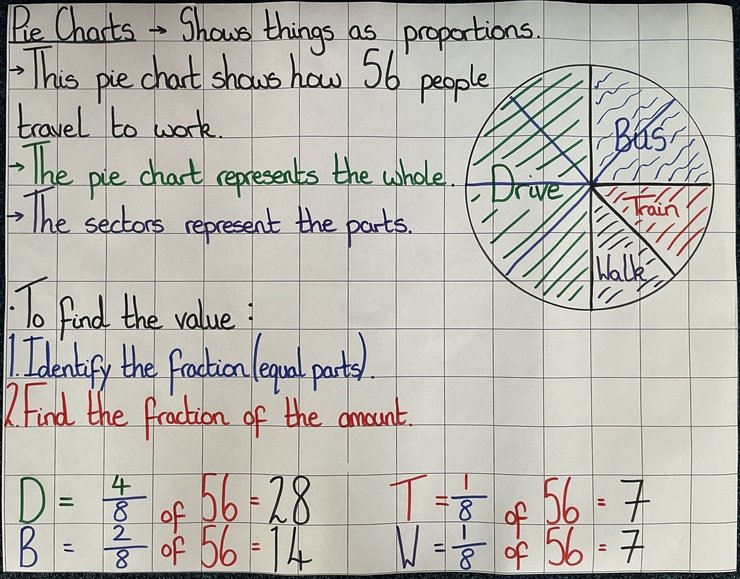 Pie Charts → Shows things as proportions.
→ This pie chart shows how 56 people
travel to work.
→ The pie chart represents the whole.
→ The sectors represent the parts.
Bus
Drive
Train
Walk
· To find the value :
1. Identify the fraction (equal parts).
2. Find the fraction of the amount.
D = 4/8 of 56 = 28
T = 1/8 of 56 = 7
B = 2/8 of 56 = 14
W = 1/8 of 56 = 7